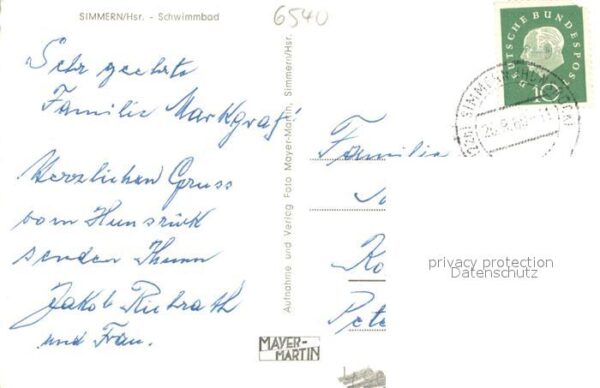 SIMMERN/Hsr. - Schwimmbad
6540
Sehr geehrte
Familie Markgraf!
Herzlichen Gruss
vom Hunsrück
senden Ihnen
Jakob
und Frau.
Aufnahme und Verlag Foto Mayer-Martin, Simmern/Hsr.
MAYER-
MARTIN
DEUTSCHE BUNDESPOST
10
SIMMERN
Familie
Ko
Pete
privacy protection
Datenschutz